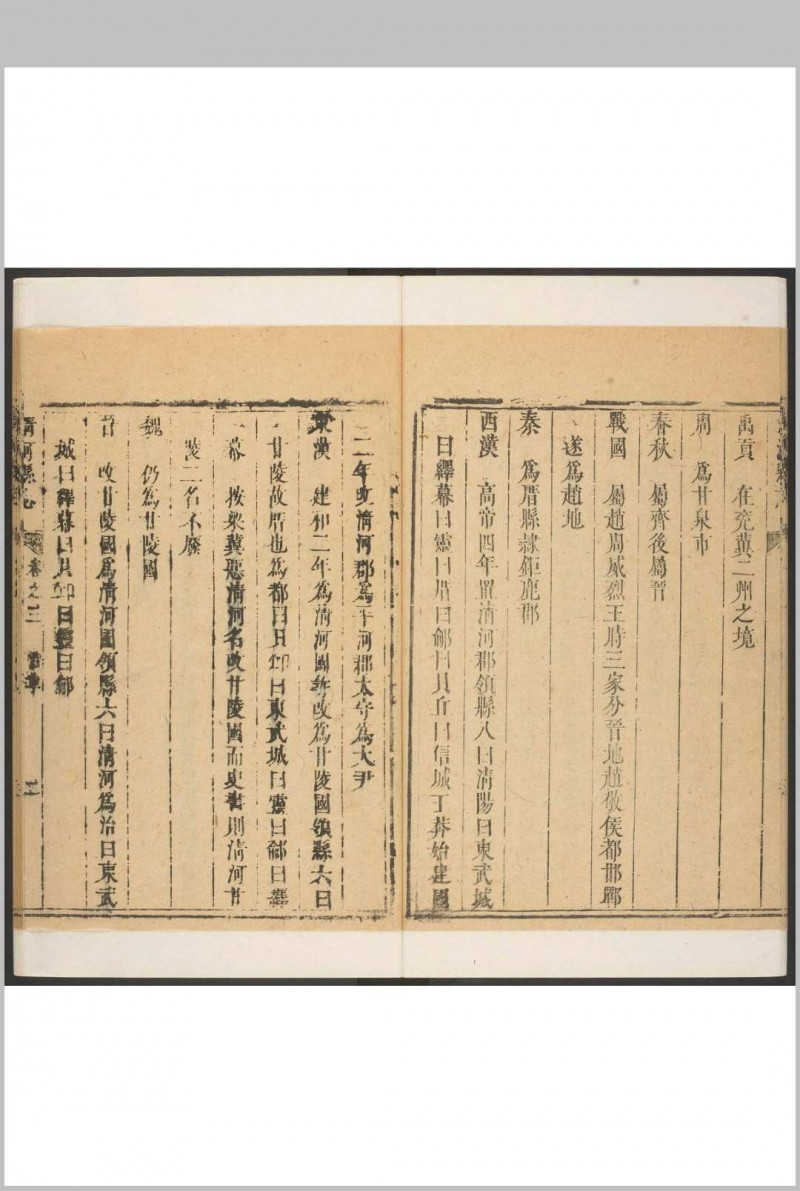 禹貢　在兖冀二州之境
周　爲甘泉市
春秋　屬齊後屬晉
戰國　屬趙周威烈王時三家分晉地趙敬侯都邯鄲
遂爲趙地
秦　爲厝縣隷鉅鹿郡
西漢　高帝四年置清河郡領縣八曰清陽曰東武城
曰繹幕曰靈曰厝曰鄃曰貝丘曰信城王莽始建國
二年改清河郡爲平河郡太守爲大尹
東漢　建和二年爲清河國後改爲甘陵國領縣六曰
甘陵故厝也爲都曰貝丘曰東武城曰靈曰鄃曰繹
幕　按梁冀惡清河名改甘陵國而史書則清河甘
陵二名不廢
魏　仍爲甘陵國
晉　改甘陵國爲清河國領縣六曰清河爲治曰東武
城曰繹幕曰貝丘曰靈曰鄃
清河縣志　卷之三　二